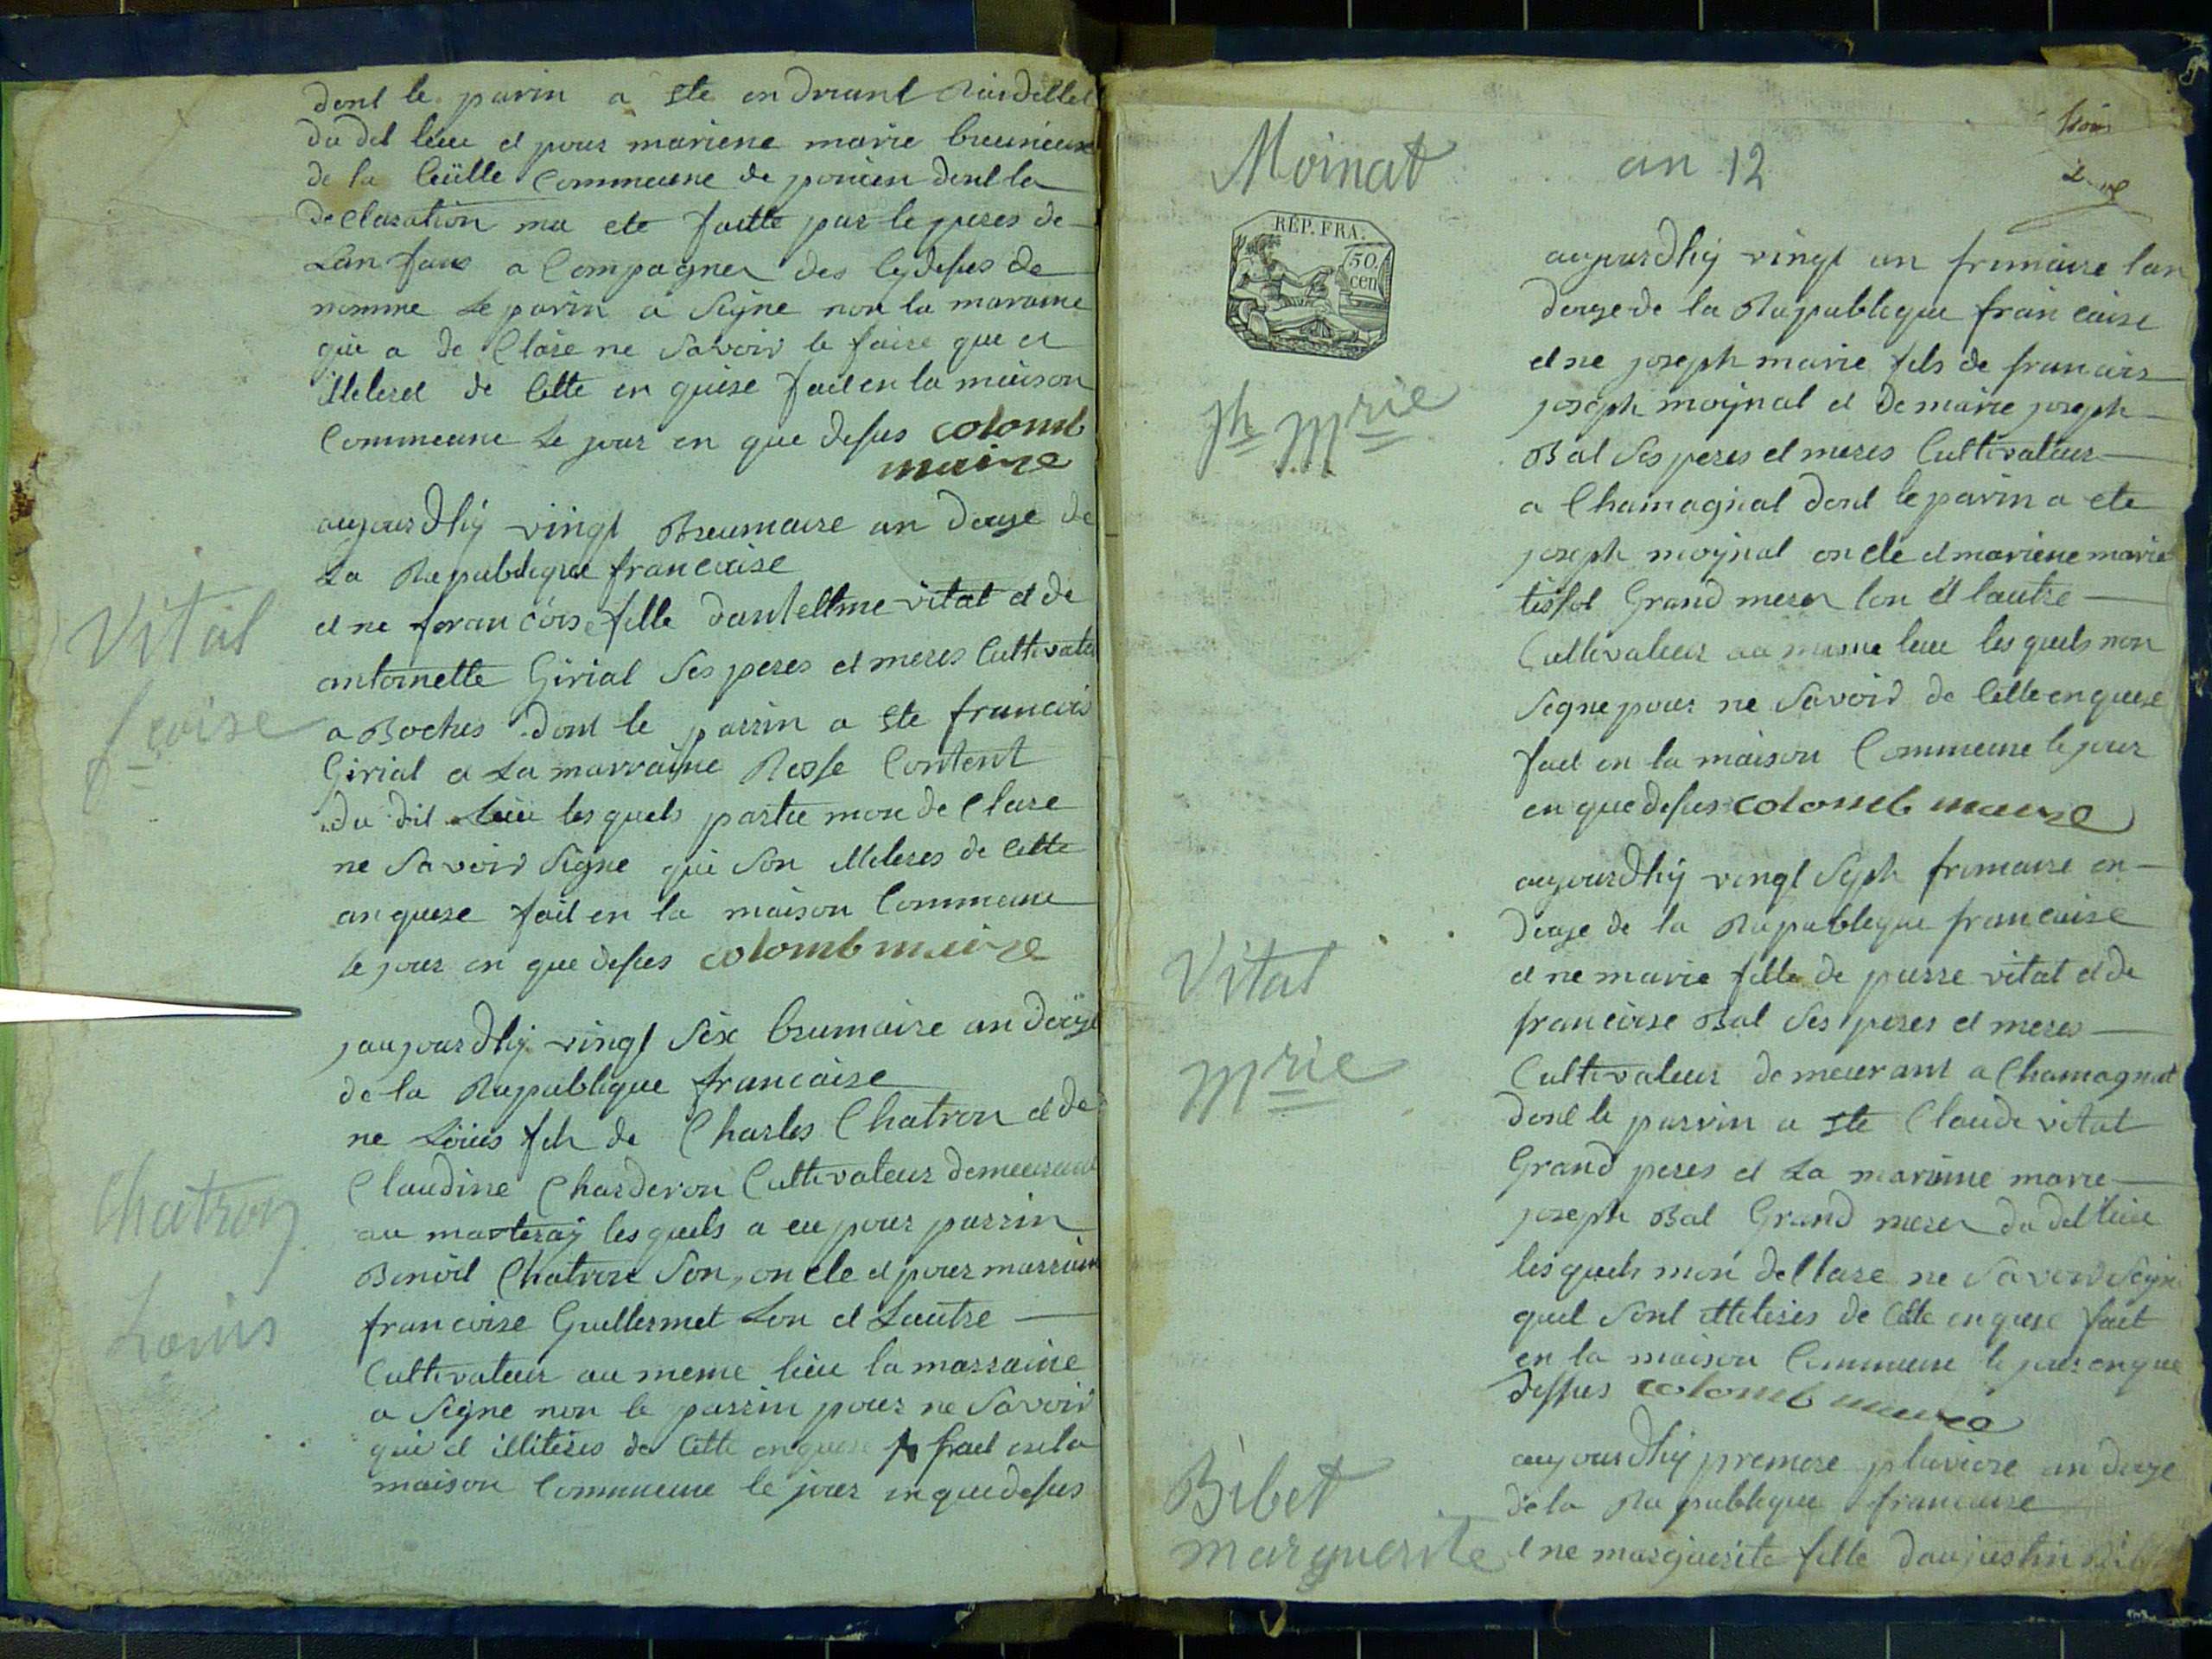 dont le parin a ete
du dit lieu et pour mariene marie
de la Commeune de poncin dont la
declaration ma ete faitte par le peres de
Lan fans a Compagner des cy desus de
nomme Le parin a Signe non la maraine
qui a de Clare ne Savoir le faire que et
de Cette en quise fait en la maison
Commeune Le jour en que desus colomb
maire
Vital
f coise
aujourdhÿ vingt Breumaire an douze de
La Republique francaise
et ne francoise fille dantellme vital et de
antoinette Girial Ses peres et meres Cultivate
a Boches dont le parrin a ete francois
Girial et La marraine Rosse Content
du dit Lieu les quels partie mon de Clare
ne Savoir Signe qui Son illeteres de Cette
an quere fait en la maison Commeune
le jour en que desus colomb maire
Chatron
Louis
jaujourdhÿ vingt Six brumaire an douze
de la Republique francaise
ne Louis fils de Charles Chatron et de
Claudine Charderon Cultivateur demeurant
au marteraÿ les quels a eu pour parrin
Benoit Chatron Son oncle et pour marraine
francoise Guillermet Lon et Lautre
Cultivateur au meme lieu la marraine
a Signe non le parrin pour ne Savoir
qui et illiteres de Cette enquere fait en la
maison Commeune le jour en que desus
Moinat an 12
trois
RÉP. FRA.
50 cen
jh mrie
aujourdhÿ vingt un frimaire lan
douze de la Republique francaise
et ne joseph marie fils de francois
joseph moÿnat et de marie joseph
Bal Ses peres et meres Cultivateur
a Chamagnat dont le parin a ete
joseph moÿnat oncle et mariene marie
tissot Grand merer lon et lautre
Cultivateur au meme lieu les quels non
Signe pour ne Savoir de Cette enquere
fait en la maison Commeune le jour
en que desus colomb maire
Vital
mrie
aujourdhÿ vingt Seph frimaire en
douze de la Republique francaise
et ne marie fille de pierre vital et de
francoise Bal Ses peres et meres
Cultivateur demeurant a Chamagnat
dont le parrin a ete Claude vital
Grand peres et La maraine marie
joseph Bal Grand merer du dit lieu
les quels mon de Clare ne Savoir Signe
quil Sont illeteres de Cette enquere fait
en la maison Commeune le jour en que
dessus colomb maire
Bibet
marguerite
aujourdhÿ premere pluviose an douze
de la Republique francaise
et ne marguerite fille daujustin